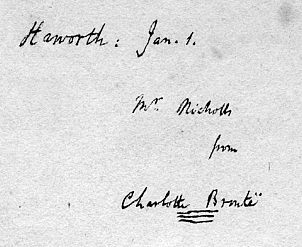 Haworth: Jan. 1.
Mr. Nicholls
from
Charlotte Brontë